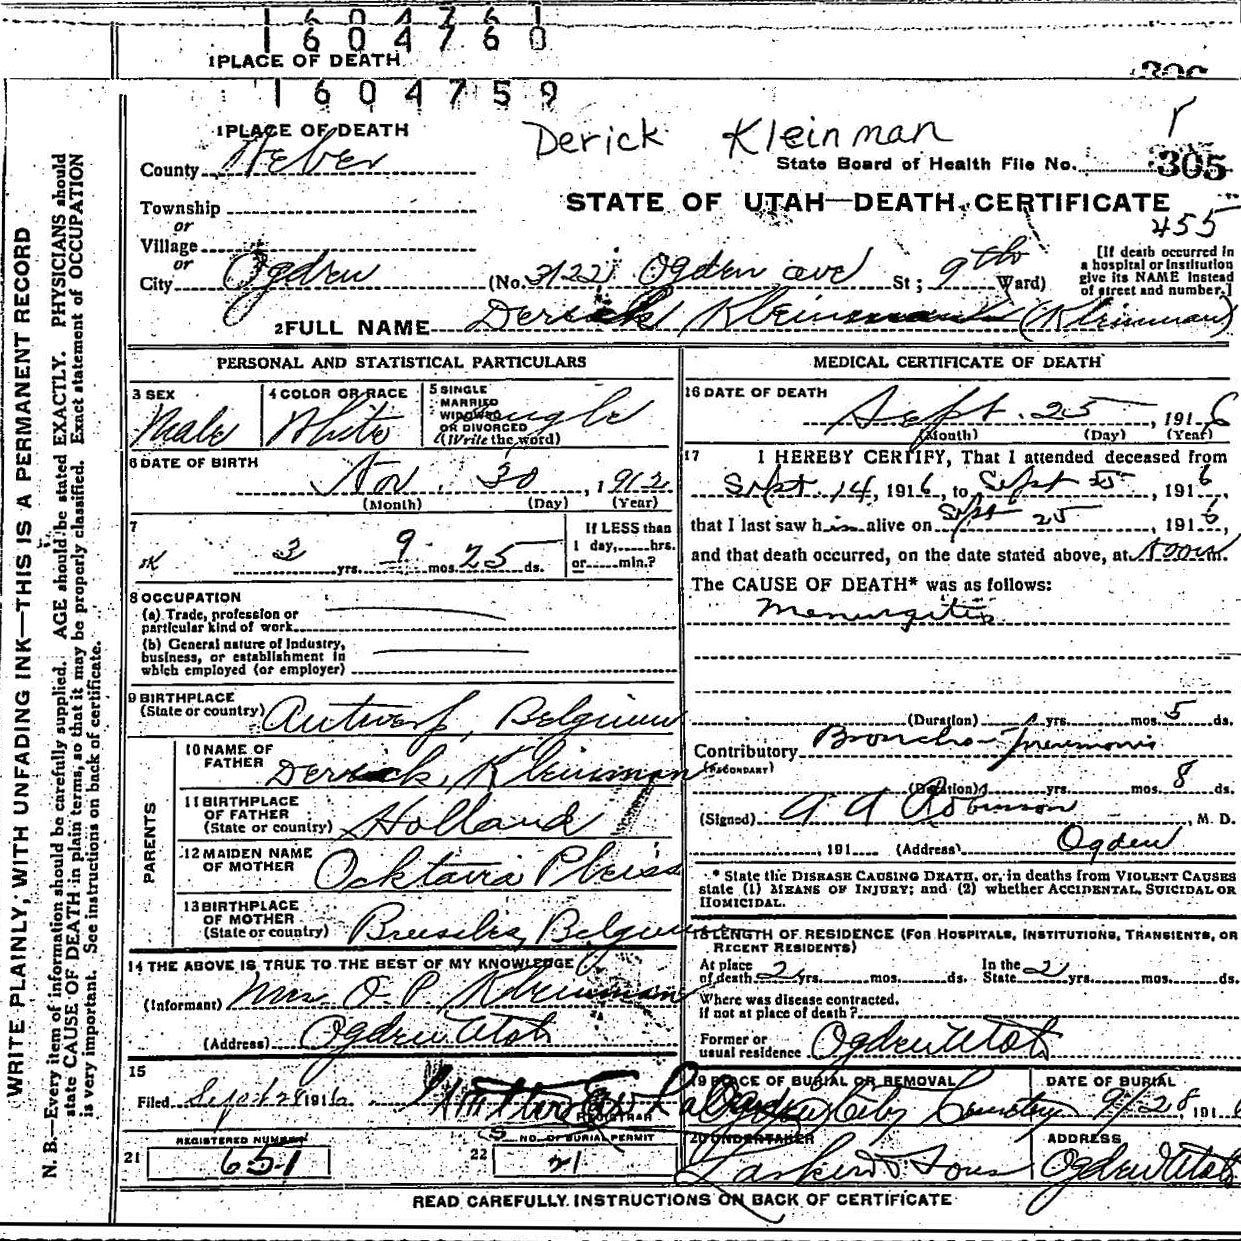 1604761
1604760
1 PLACE OF DEATH
306
1604759
1 PLACE OF DEATH
Derick Kleinman
County Weber
State Board of Health File No. 305
Township
STATE OF UTAH—DEATH CERTIFICATE
or
455
Village
or
City Ogden (No. 3122 Ogden ave St; 9th Ward)
[If death occurred in
a hospital or institution
give its NAME instead
of street and number.]
2 FULL NAME Derick Kleinman (Kleinman)
PERSONAL AND STATISTICAL PARTICULARS
3 SEX
Male
4 COLOR OR RACE
White
5 SINGLE
MARRIED
WIDOWED
OR DIVORCED
(Write the word)
Single
6 DATE OF BIRTH
Nov. 30, 1912
(Month) (Day) (Year)
7
3 yrs. 9 mos. 25 ds.
If LESS than
1 day,.....hrs.
or......min.?
8 OCCUPATION
(a) Trade, profession or
particular kind of work
(b) General nature of Industry,
business, or establishment in
which employed (or employer)
9 BIRTHPLACE
(State or country) Antwerp, Belgium
PARENTS
10 NAME OF
FATHER Derrick Kleinman
11 BIRTHPLACE
OF FATHER
(State or country) Holland
12 MAIDEN NAME
OF MOTHER Ocktavia Pleiss
13 BIRTHPLACE
OF MOTHER
(State or country) Brussels, Belgium
14 THE ABOVE IS TRUE TO THE BEST OF MY KNOWLEDGE
(Informant) Mrs. O. P. Kleinman
(Address) Ogden Utah
15
Filed Sept 28 1916
REGISTRAR
REGISTERED NUMBER
21 651
NO. OF BURIAL PERMIT
22 21
MEDICAL CERTIFICATE OF DEATH
16 DATE OF DEATH
Sept. 25, 1916
(Month) (Day) (Year)
17 I HEREBY CERTIFY, That I attended deceased from
Sept. 14, 1916, to Sept 25, 1916,
that I last saw him alive on Sept 25, 1916,
and that death occurred, on the date stated above, at
The CAUSE OF DEATH* was as follows:
Meningitis
(Duration) yrs. mos. 5 ds.
Contributory Broncho-pneumonia
(SECONDARY)
(Duration) yrs. mos. 8 ds.
(Signed) A A Robinson, M. D.
, 191 (Address) Ogden
* State the DISEASE CAUSING DEATH, or, in deaths from VIOLENT CAUSES
state (1) MEANS OF INJURY; and (2) whether ACCIDENTAL, SUICIDAL OR
HOMICIDAL.
18 LENGTH OF RESIDENCE (FOR HOSPITALS, INSTITUTIONS, TRANSIENTS, OR
RECENT RESIDENTS)
At place
of death 2 yrs. mos. ds.
In the
State 2 yrs. mos. ds.
Where was disease contracted,
if not at place of death?
Former or
usual residence Ogden Utah
19 PLACE OF BURIAL OR REMOVAL
Ogden City Cemetery
DATE OF BURIAL
9/28 1916
20 UNDERTAKER
Larkin & Sons
ADDRESS
Ogden Utah
READ CAREFULLY INSTRUCTIONS ON BACK OF CERTIFICATE
WRITE PLAINLY, WITH UNFADING INK—THIS IS A PERMANENT RECORD
N. B.—Every item of information should be carefully supplied. AGE should be stated EXACTLY. PHYSICIANS should
state CAUSE OF DEATH in plain terms, so that it may be properly classified. Exact statement of OCCUPATION
is very important. See instructions on back of certificate.